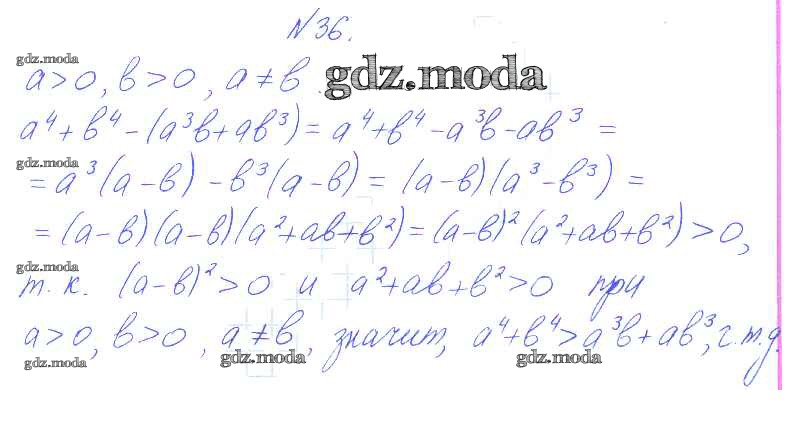 № 36.
gdz.moda
a>0, b>0, a≠b.
gdz.moda
a⁴+b⁴-(a³b+ab³)=a⁴+b⁴-a³b-ab³=
gdz.moda
=a³(a-b)-b³(a-b)=(a-b)(a³-b³)=
=(a-b)(a-b)(a²+ab+b²)=(a-b)²(a²+ab+b²)>0,
gdz.moda
т.к. (a-b)²>0 и a²+ab+b²>0 при
a>0, b>0, a≠b, значит, a⁴+b⁴>a³b+ab³, ч.т.д.
gdz.moda gdz.moda gdz.moda